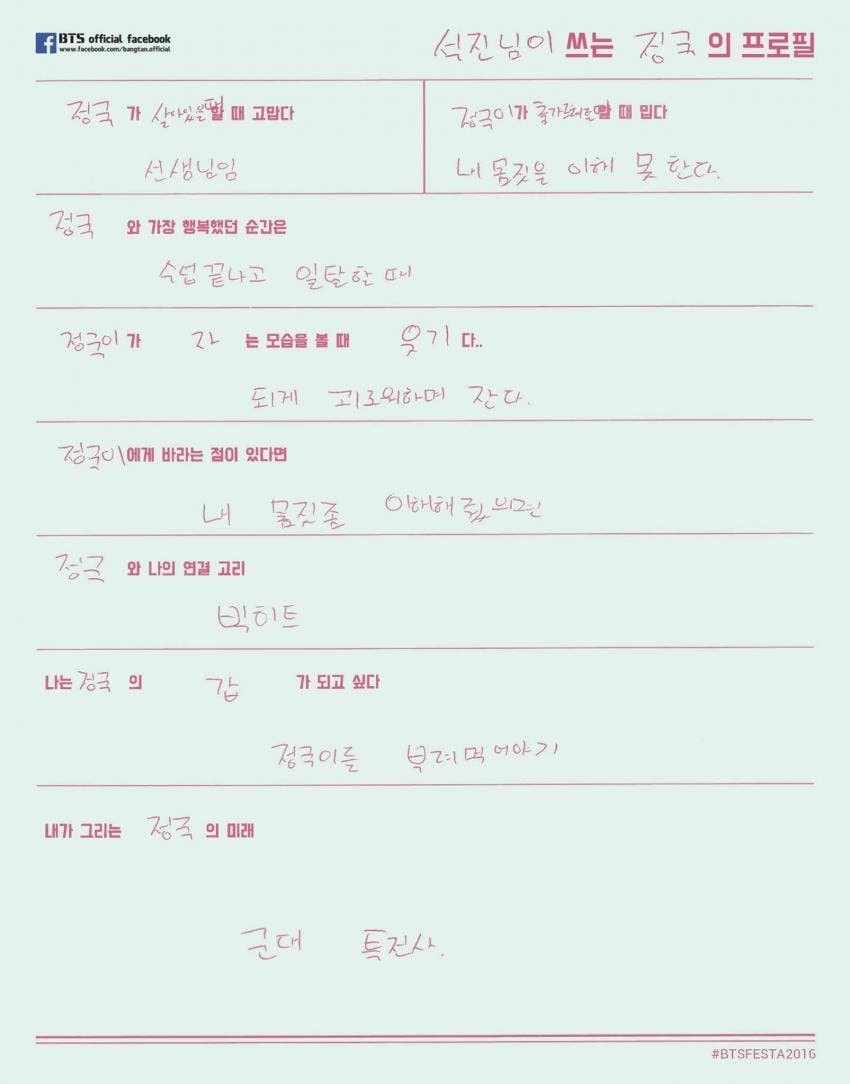 BTS official facebook
www.facebook.com/bangtan.official
석진님이 쓰는 정국 의 프로필
정국 가 살아있을 때 고맙다
선생님임
정국이가 때 밉다
내 몸짓을 이해 못 한다.
정국 와 가장 행복했던 순간은
수업 끝나고 일탈할 때
정국이 가 자 는 모습을 볼 때 웃기 다..
되게 괴로워하며 잔다.
정국이 에게 바라는 점이 있다면
내 몸짓좀 이해해줬으면
정국 와 나의 연결 고리
빅히트
나는 정국 의 갑 가 되고 싶다
정국이를 부려먹어야기
내가 그리는 정국 의 미래
군대 특전사.
#BTSFESTA2016